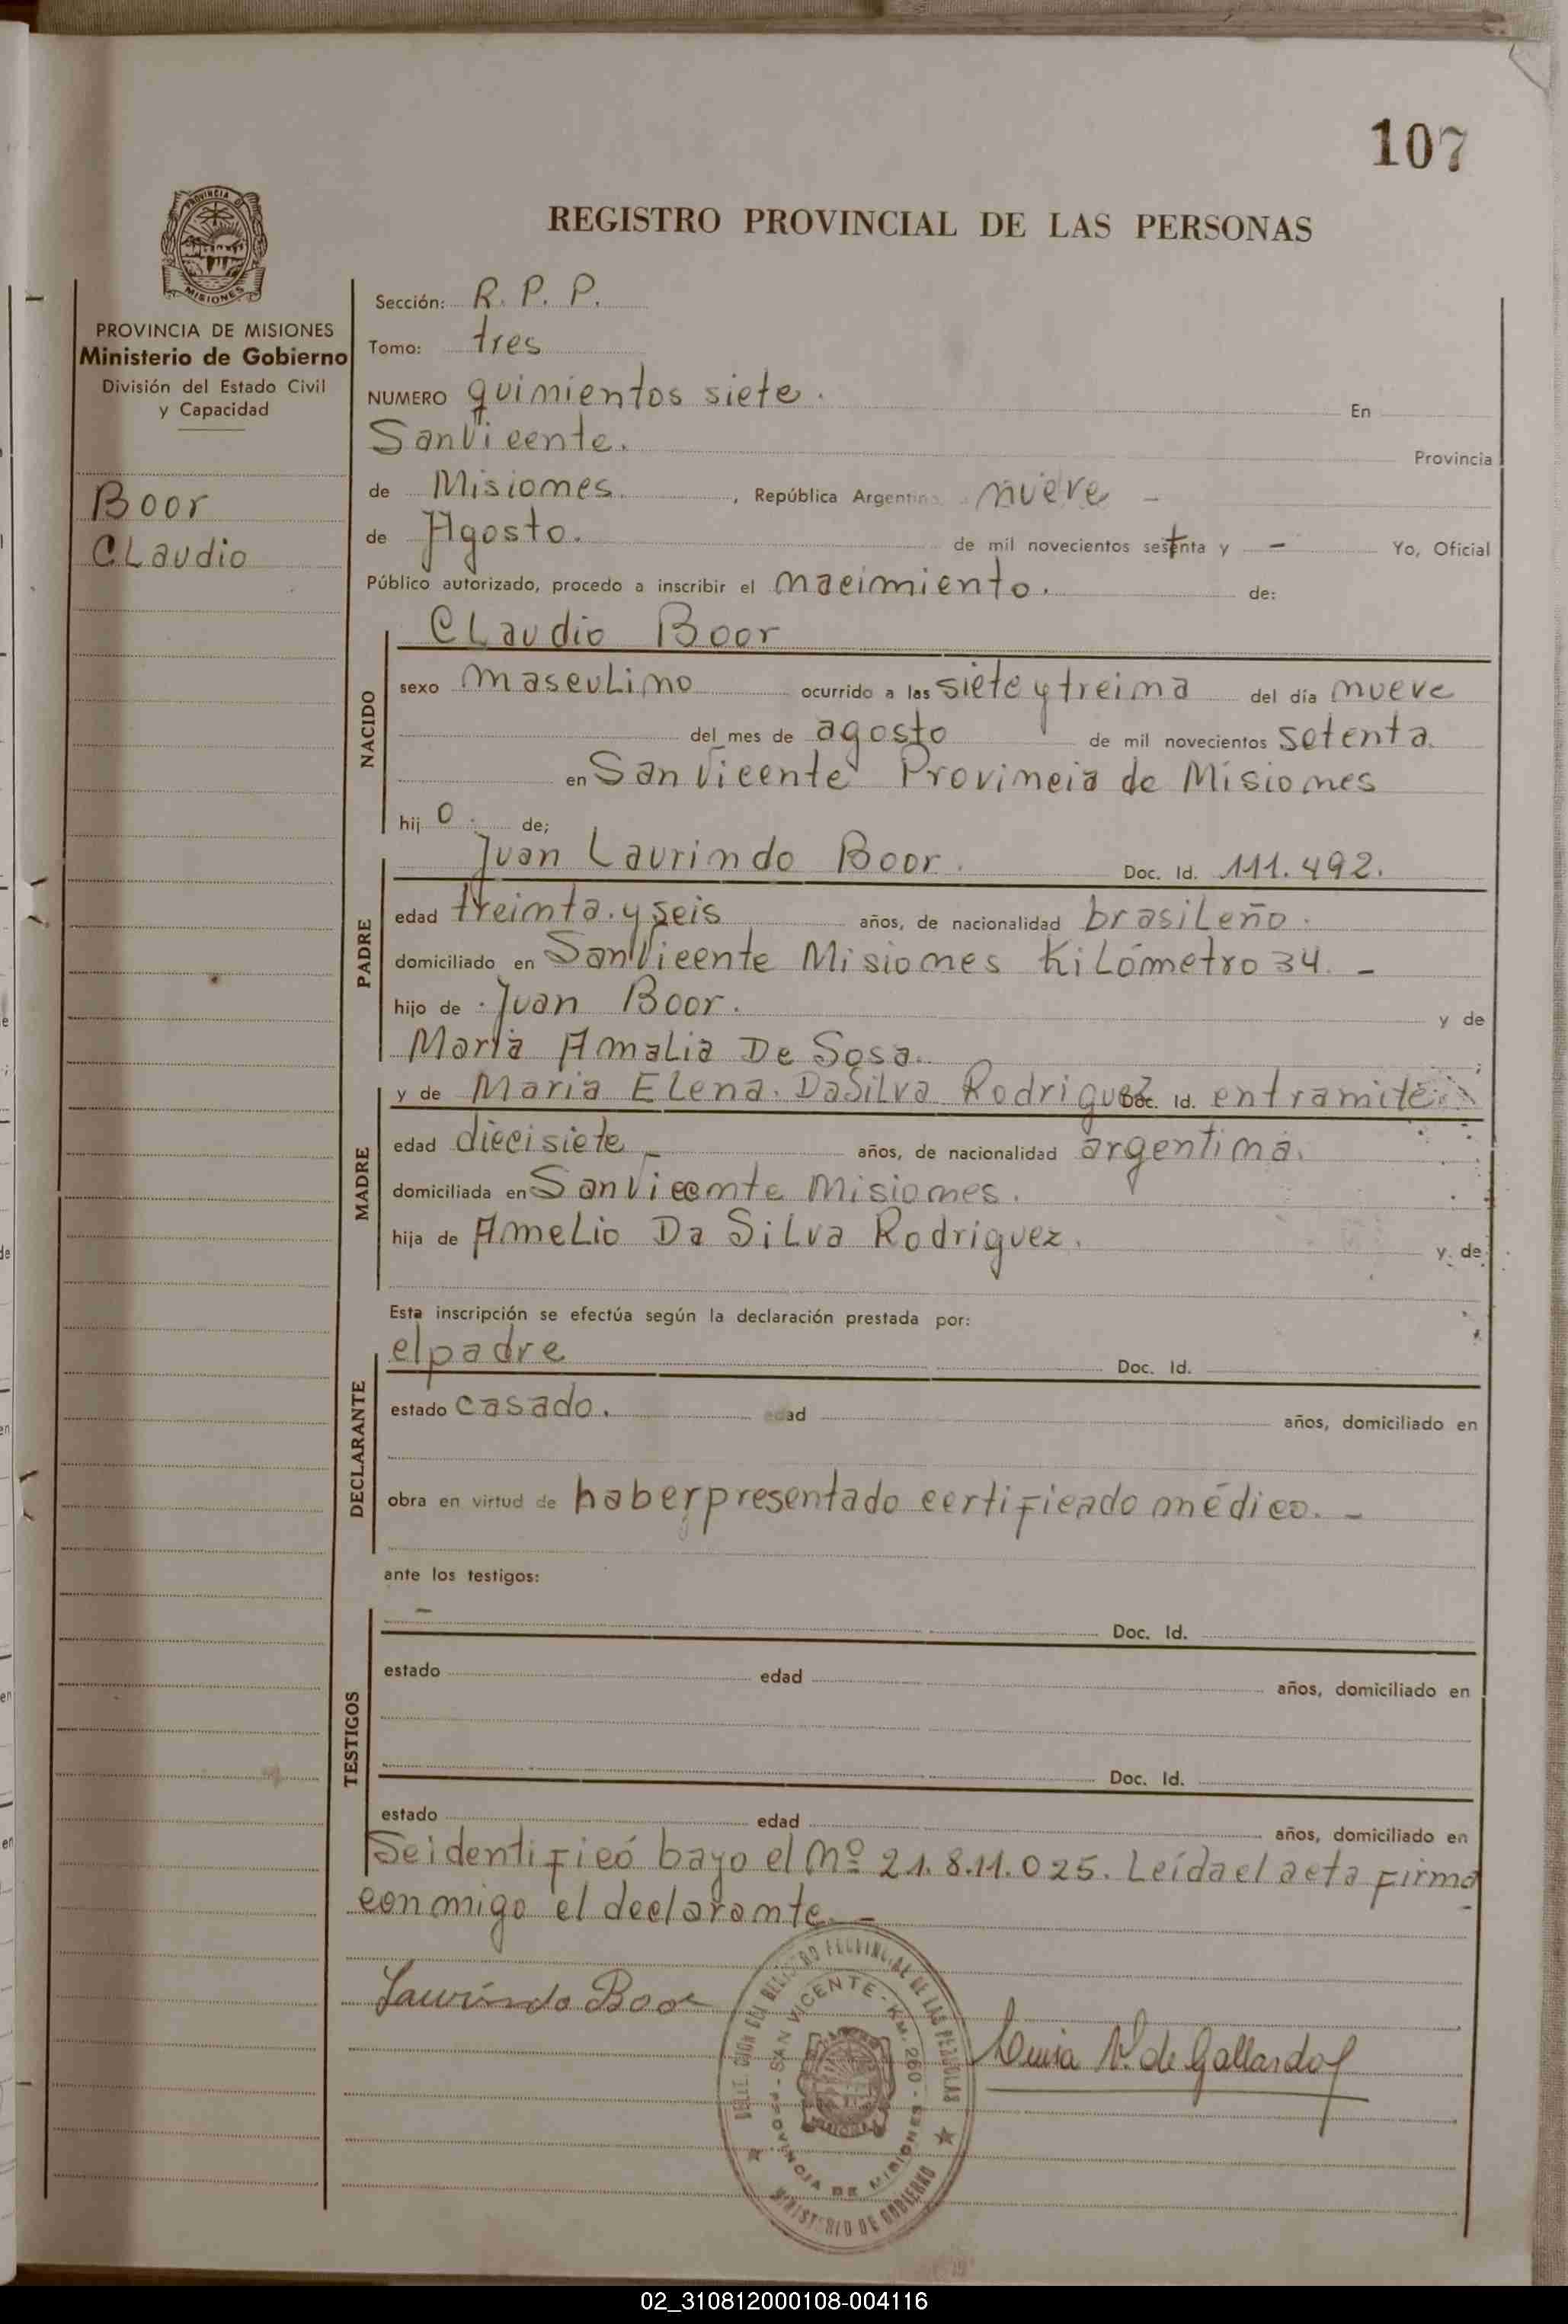 107
REGISTRO PROVINCIAL DE LAS PERSONAS
PROVINCIA DE MISIONES
Ministerio de Gobierno
División del Estado Civil
y Capacidad
Boor
CLaudio
Sección: R. P. P.
Tomo: tres
NUMERO quimientos siete. En
San Vicente. Provincia
de Misiones. , República Argentina nueve -
de Agosto. de mil novecientos setenta y - Yo, Oficial
Público autorizado, procedo a inscribir el nacimiento. de:
CLaudio Boor
NACIDO
sexo mascuLino ocurrido a las siete y treima del día nueve
del mes de agosto de mil novecientos setenta.
en San Vicente Provincia de Misiones
hij o. de;
PADRE
Juan Laurindo Boor. Doc. Id. 111.492.
edad treinta y seis años, de nacionalidad brasiLeño.
domiciliado en San Vicente Misiones KiLómetro 34. -
hijo de Juan Boor. y de
Maria AmaLia De Sosa.
MADRE
y de Maria ELena. DaSilva Rodriguez Doc. Id. en tramite
edad diecisiete - años, de nacionalidad argentina.
domiciliada en San Vicente Misiones.
hija de AmeLio Da SiLva Rodriguez. y de
Esta inscripción se efectúa según la declaración prestada por:
DECLARANTE
el padre Doc. Id.
estado casado. edad años, domiciliado en
obra en virtud de haber presentado certificado médico. -
ante los testigos:
TESTIGOS
- Doc. Id.
estado edad años, domiciliado en
Doc. Id.
estado edad años, domiciliado en
Se identificó bayo el Nº 21.8.11.025. Leída el acta firma
conmigo el declarante. -
Laurindo Boor
de Gallardo
SAN VICENTE - Km. 260 - PROVINCIA DE MISIONES
MINISTERIO DE GOBIERNO
02_310812000108-004116